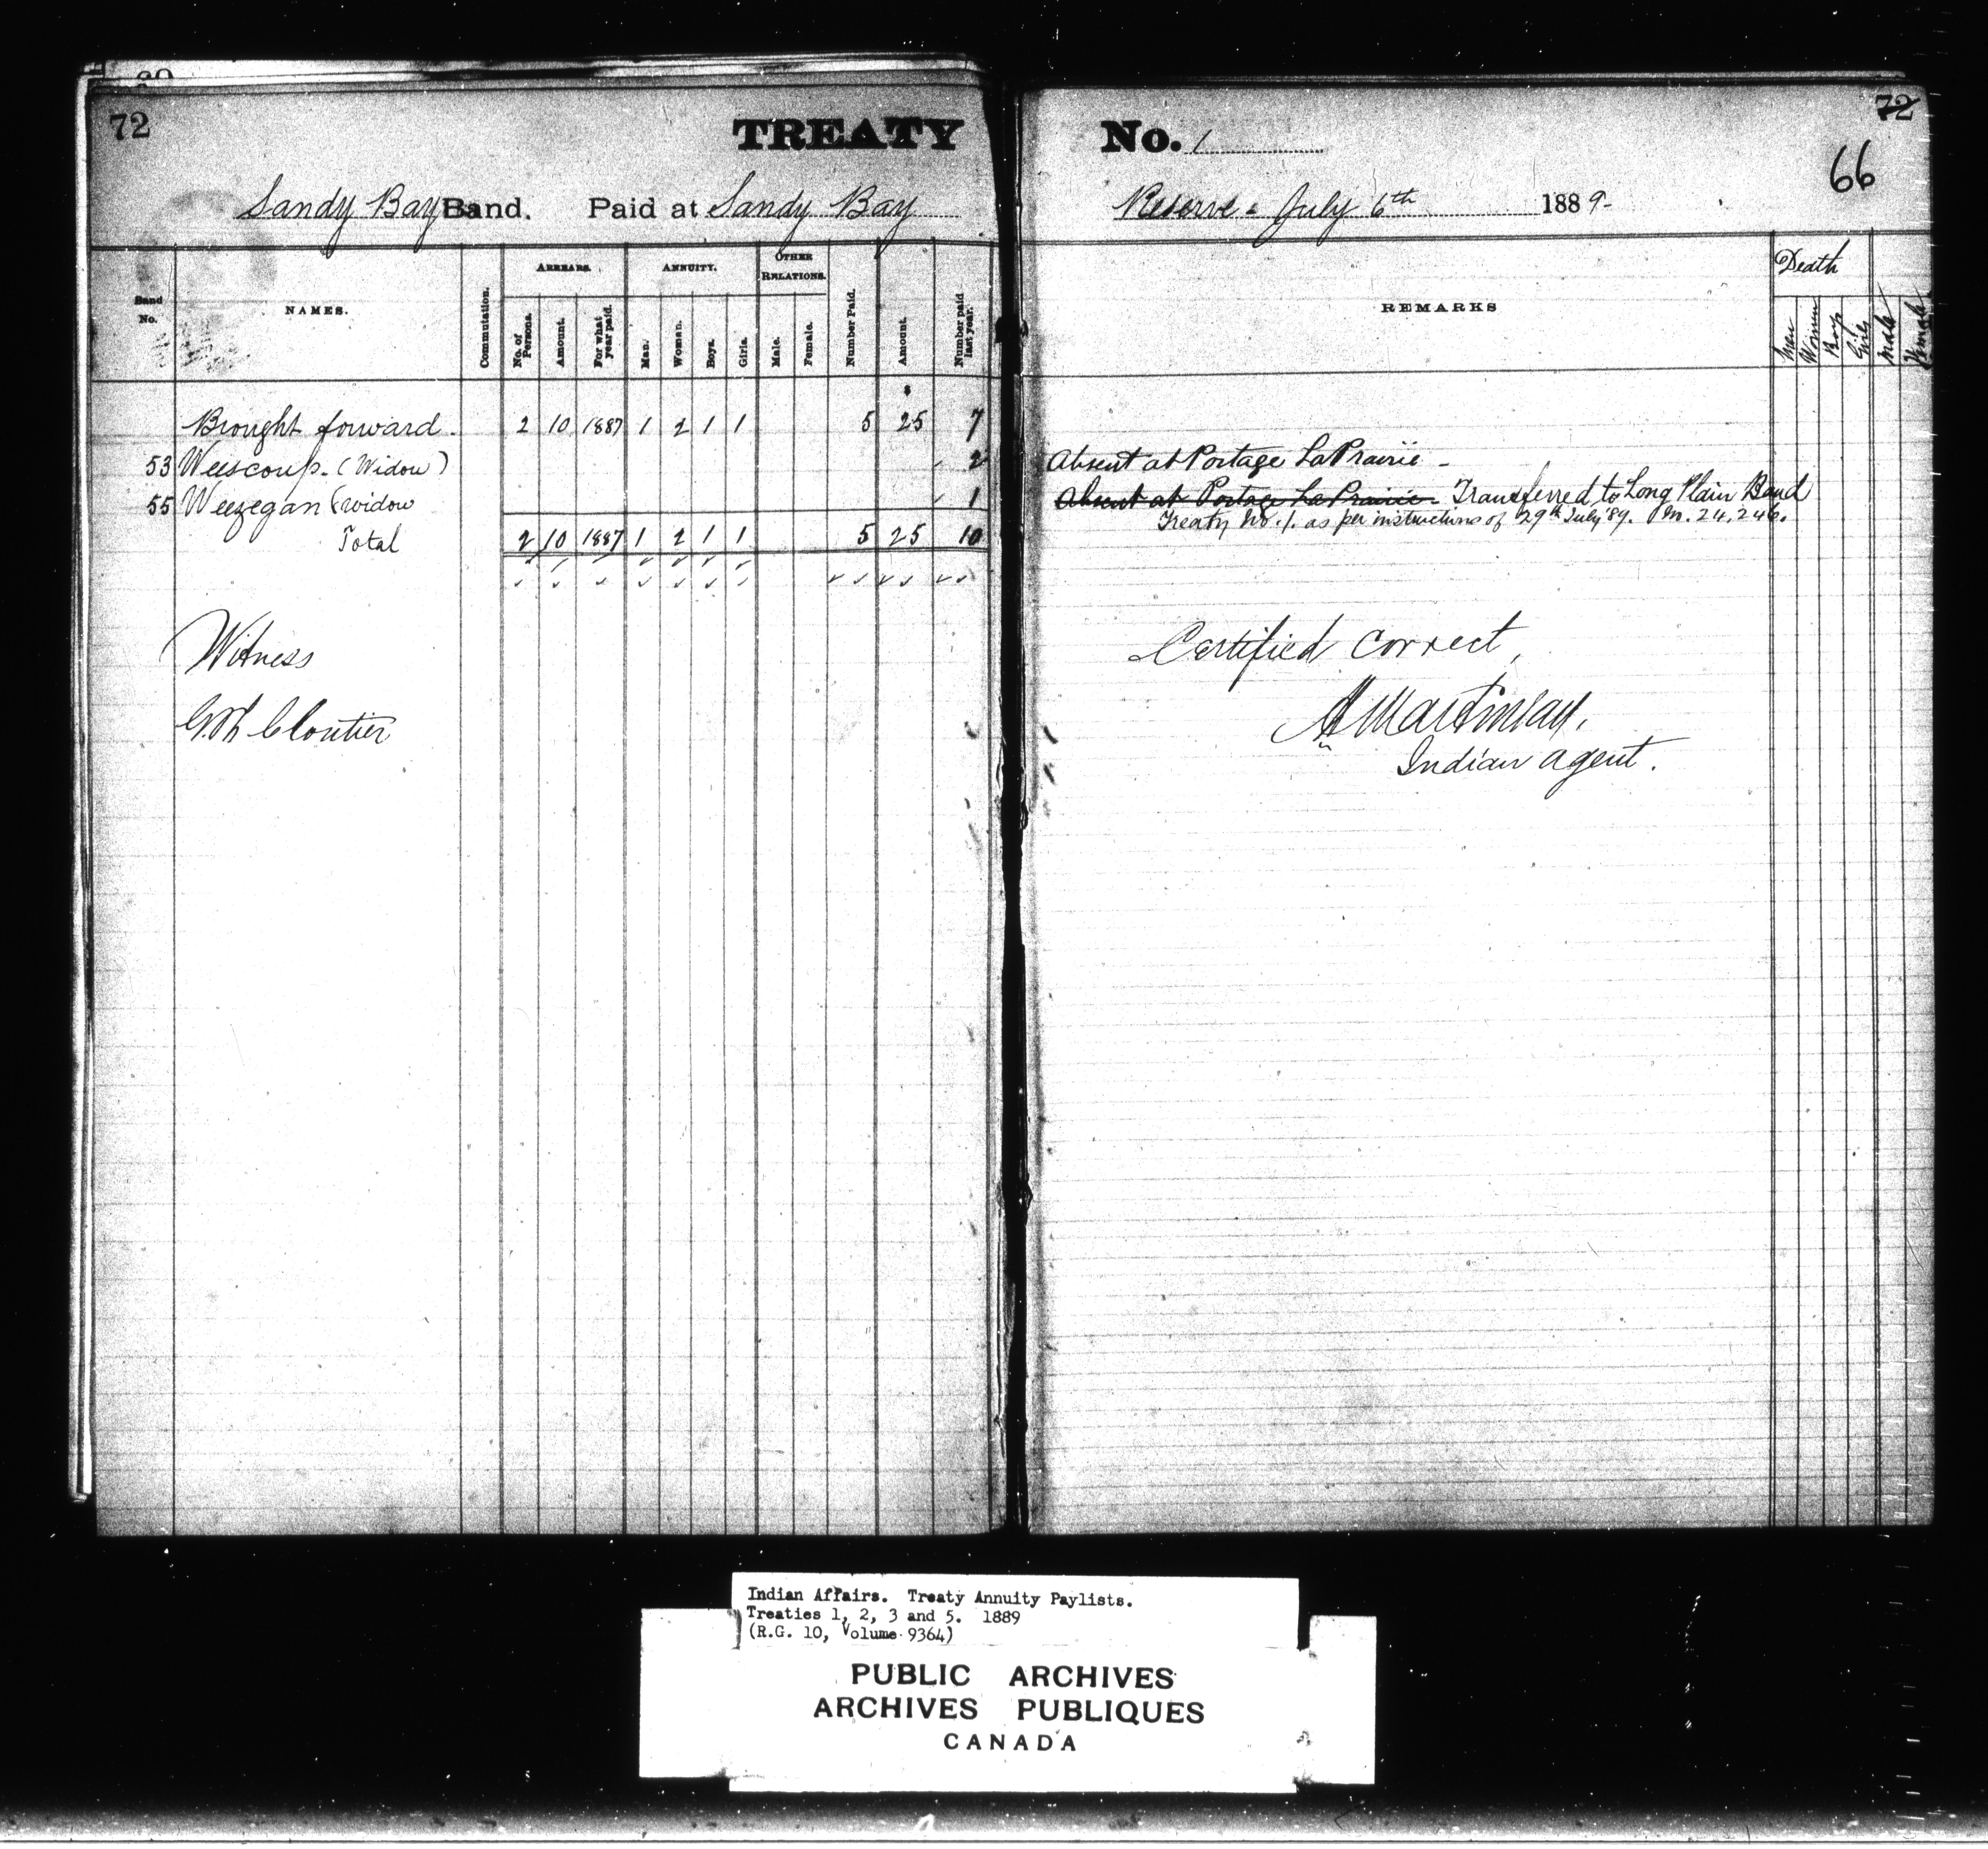 72
TREATY No. 1
72
66
Sandy Bay Band. Paid at Sandy Bay Reserve - July 6th 1889-
Band No. NAMES. Commutation. ARREARS. No. of Persons. Amount. For what year paid. ANNUITY. Man. Woman. Boys. Girls. OTHER RELATIONS. Male. Female. Number Paid. Amount. Number paid last year. REMARKS Death Men Women Boys Girls Male Female
$
Brought forward. 2 10 1887 1 2 1 1 5 25 7
53 Weescoup. (Widow) 2 Absent at Portage La Prairie -
55 Weezegan (widow 1 Absent at Portage La Prairie - Transferred to Long Plain Band
Treaty No. 1. as per instructions of 29th July '89. M. 24,246.
Total 2 10 1887 1 2 1 1 5 25 10
Witness
Cloutier
Certified correct,
Indian agent.
Indian Affairs. Treaty Annuity Paylists.
Treaties 1, 2, 3 and 5. 1889
(R.G. 10, Volume 9364)
PUBLIC ARCHIVES
ARCHIVES PUBLIQUES
CANADA